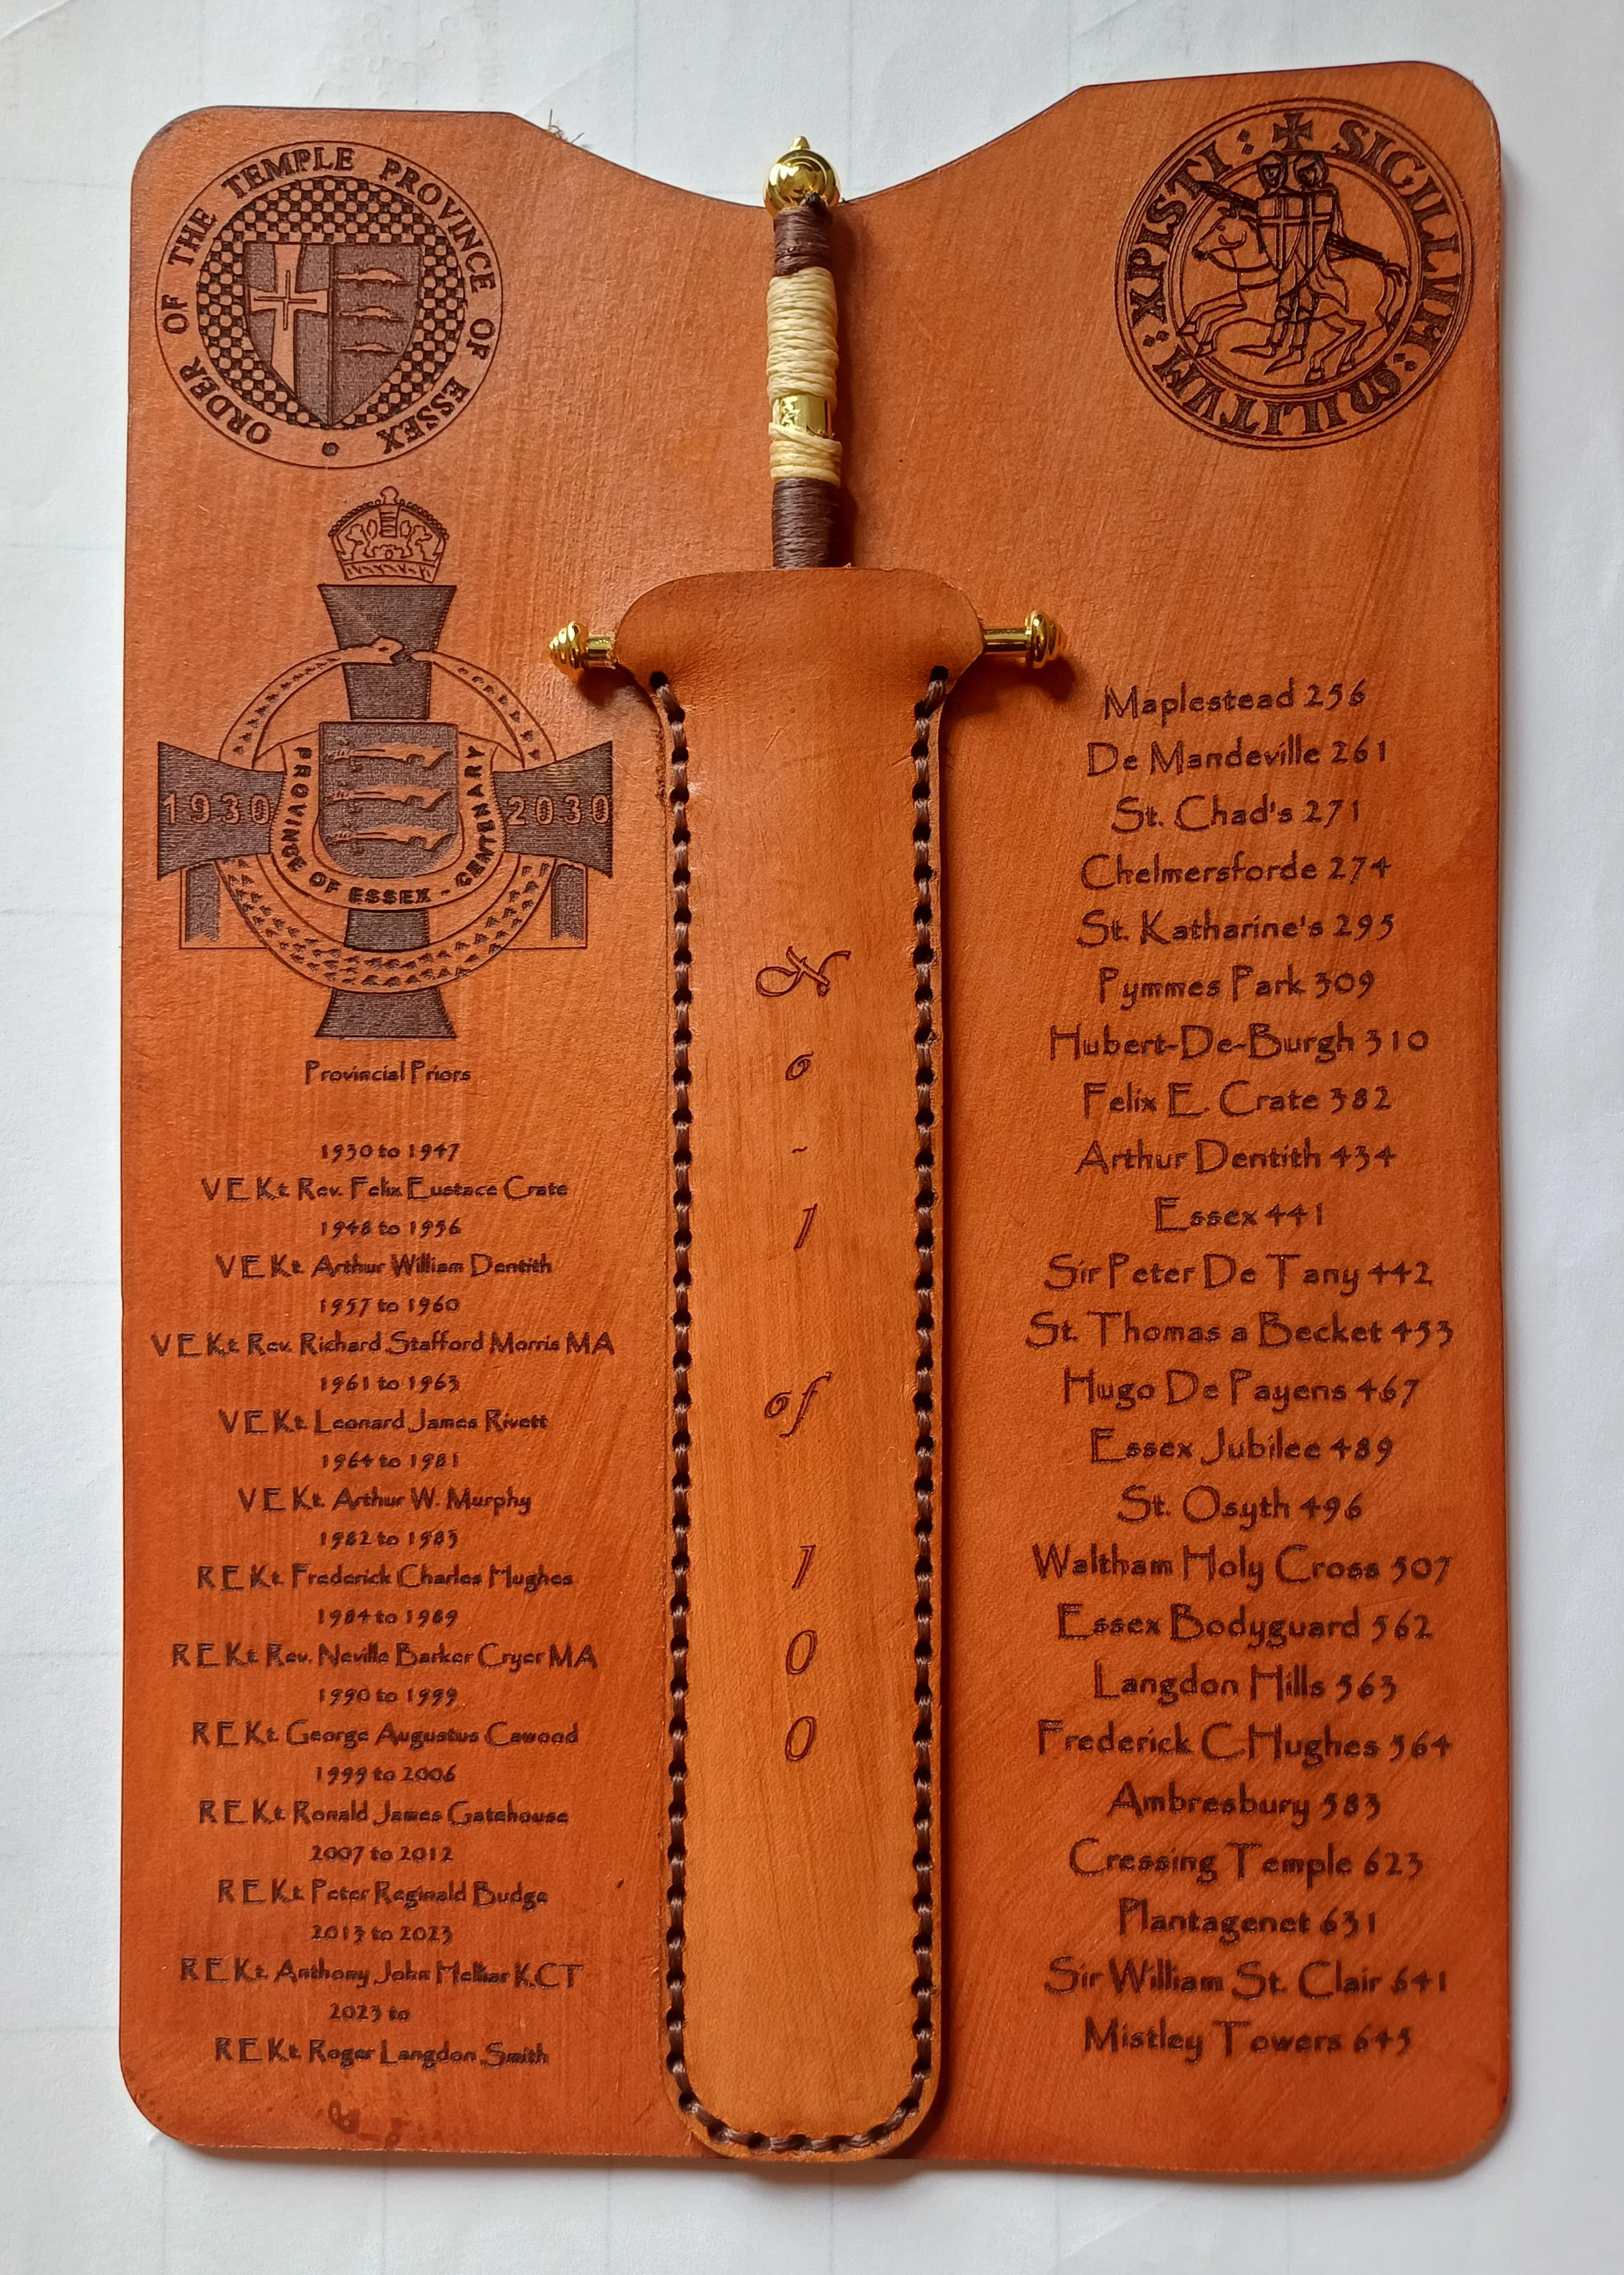 ORDER OF THE TEMPLE PROVINCE OF ESSEX
1930 2030
PROVINCE OF ESSEX - CENTENARY
Provincial Priors
1930 to 1947
V E Kt Rev. Felix Eustace Crate
1948 to 1956
V E Kt. Arthur William Dentith
1957 to 1960
V E Kt Rev. Richard Stafford Morris MA
1961 to 1963
V E Kt. Leonard James Rivett
1964 to 1981
V E Kt. Arthur W. Murphy
1982 to 1983
R E Kt. Frederick Charles Hughes
1984 to 1989
R E Kt Rev. Neville Barker Cryer MA
1990 to 1999
R E Kt. George Augustus Cawood
1999 to 2006
R E Kt Ronald James Gatehouse
2007 to 2012
R E Kt Peter Reginald Budge
2013 to 2023
R E Kt. Anthony John Helliar KCT
2023 to
R E Kt. Roger Langdon Smith
N
o
-
1
of
1
0
0
SIGILLVM : MILITVM : XPISTI :
Maplestead 256
De Mandeville 261
St. Chad's 271
Chelmersforde 274
St. Katharine's 295
Pymmes Park 309
Hubert-De-Burgh 310
Felix E. Crate 382
Arthur Dentith 434
Essex 441
Sir Peter De Tany 442
St. Thomas a Becket 453
Hugo De Payens 467
Essex Jubilee 489
St. Osyth 496
Waltham Holy Cross 507
Essex Bodyguard 562
Langdon Hills 563
Frederick C.Hughes 564
Ambresbury 583
Cressing Temple 623
Plantagenet 631
Sir William St. Clair 641
Mistley Towers 645